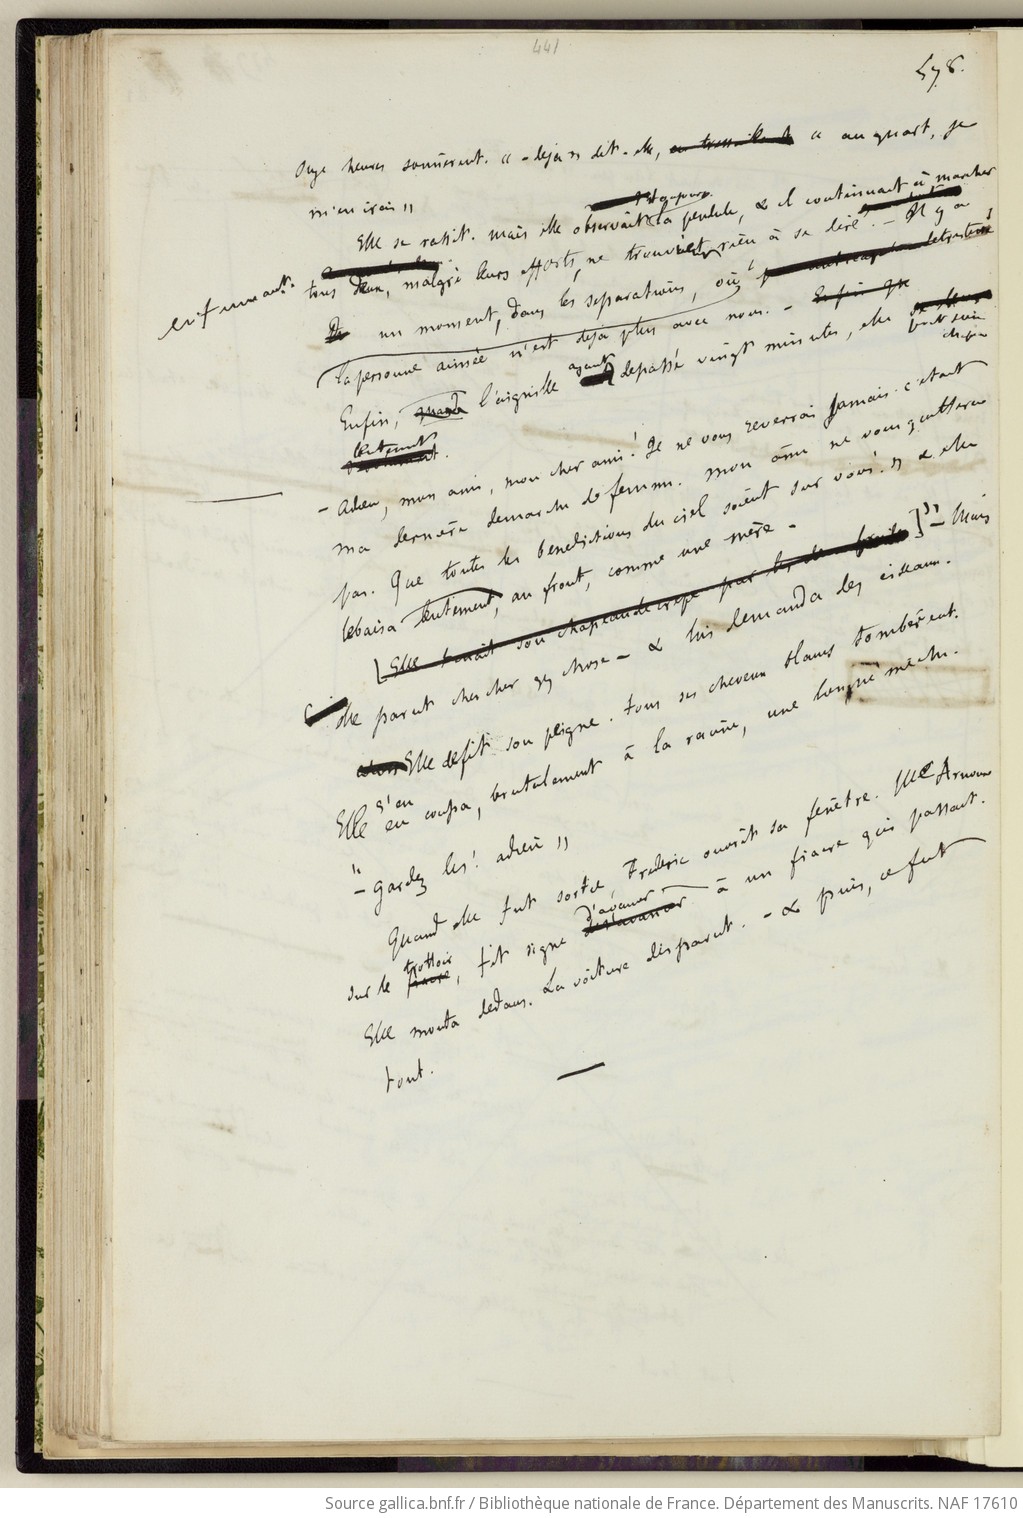 441
478.
Onze heures sonnèrent. « – déjà » dit-elle, « au quart, je
m'en irai »
Elle se rassit. mais elle observait la pendule, & il continuait à marcher
en fumant.
tous deux, malgré leurs efforts, ne trouvaient rien à se dire. – Il y a
un moment, dans les séparations, où
la personne aimée n'est déjà plus avec nous. – Enfin que
Enfin, quand l'aiguille ayant dépassé vingt minutes, elle
prit son
chapeau
lentement
lentement.
– adieu, mon ami, mon cher ami! Je ne vous reverrai jamais. c'était
ma dernière démarche de femme. mon âme ne vous quittera
pas. Que toutes les bénédictions du ciel soient sur vous! » & elle
le baisa lentement, au front, comme une mère –
[Elle tenait son chapeau de crêpe par les ]» – Mais
elle parut chercher qq chose – & lui demanda des ciseaux.
alors Elle défit son peigne. tous ses cheveux blancs tombèrent.
s'en
Elle en coupa, brutalement à la racine, une longue mèche.
« – gardez les! adieu »
Quand elle fut sortie, Frédéric ouvrit sa fenêtre. Me Arnoux
d'avancer
trottoir
sur le fiacre, fit signe d'avancer à un fiacre qui passait.
Elle monta dedans. La voiture disparut. – & puis, ce fut
tout.
Source gallica.bnf.fr / Bibliothèque nationale de France. Département des Manuscrits. NAF 17610